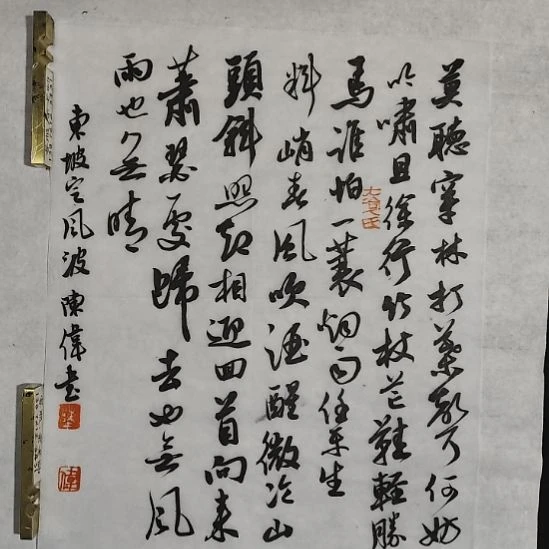 莫聽穿林打葉聲何妨
吟嘯且徐行竹杖芒鞋輕勝
馬誰怕一蓑烟雨任平生
料峭春風吹酒醒微冷山
頭斜照却相迎回首向來
蕭瑟處歸去也無風
雨也無晴
東坡定風波陳偉書